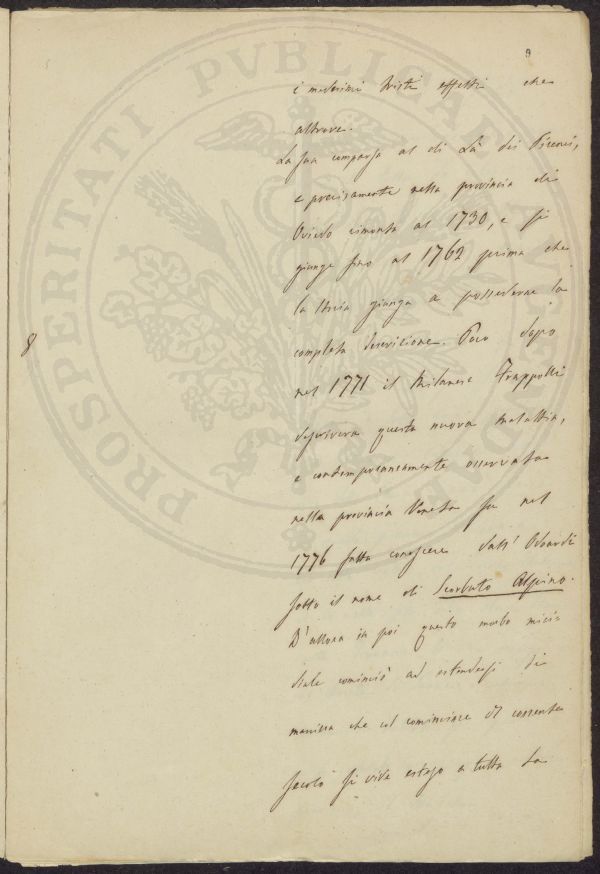 9
i medesimi tristi effetti che
altrove.
La sua comparsa al di là dei Pirenei,
e precisamente nella provincia di
Oviedo rimonta al 1730, e si
giunge fino al 1762 prima che
la Storia giunga a possederne la
completa descrizione. Poco dopo
nel 1771 il Milanese Frappolli
descriveva questa nuova malattia,
e contemporaneamente osservata
nella provincia Veneta fu nel
1776 fatta conoscere dall' Odoardi
sotto il nome di Scorbuto Alpino.
D'allora in poi questo morbo mici-
diale cominciò ad estendersi di
maniera che al cominciare del corrente
secolo si vide esteso a tutta la
8
PROSPERITATI PVBLICAE